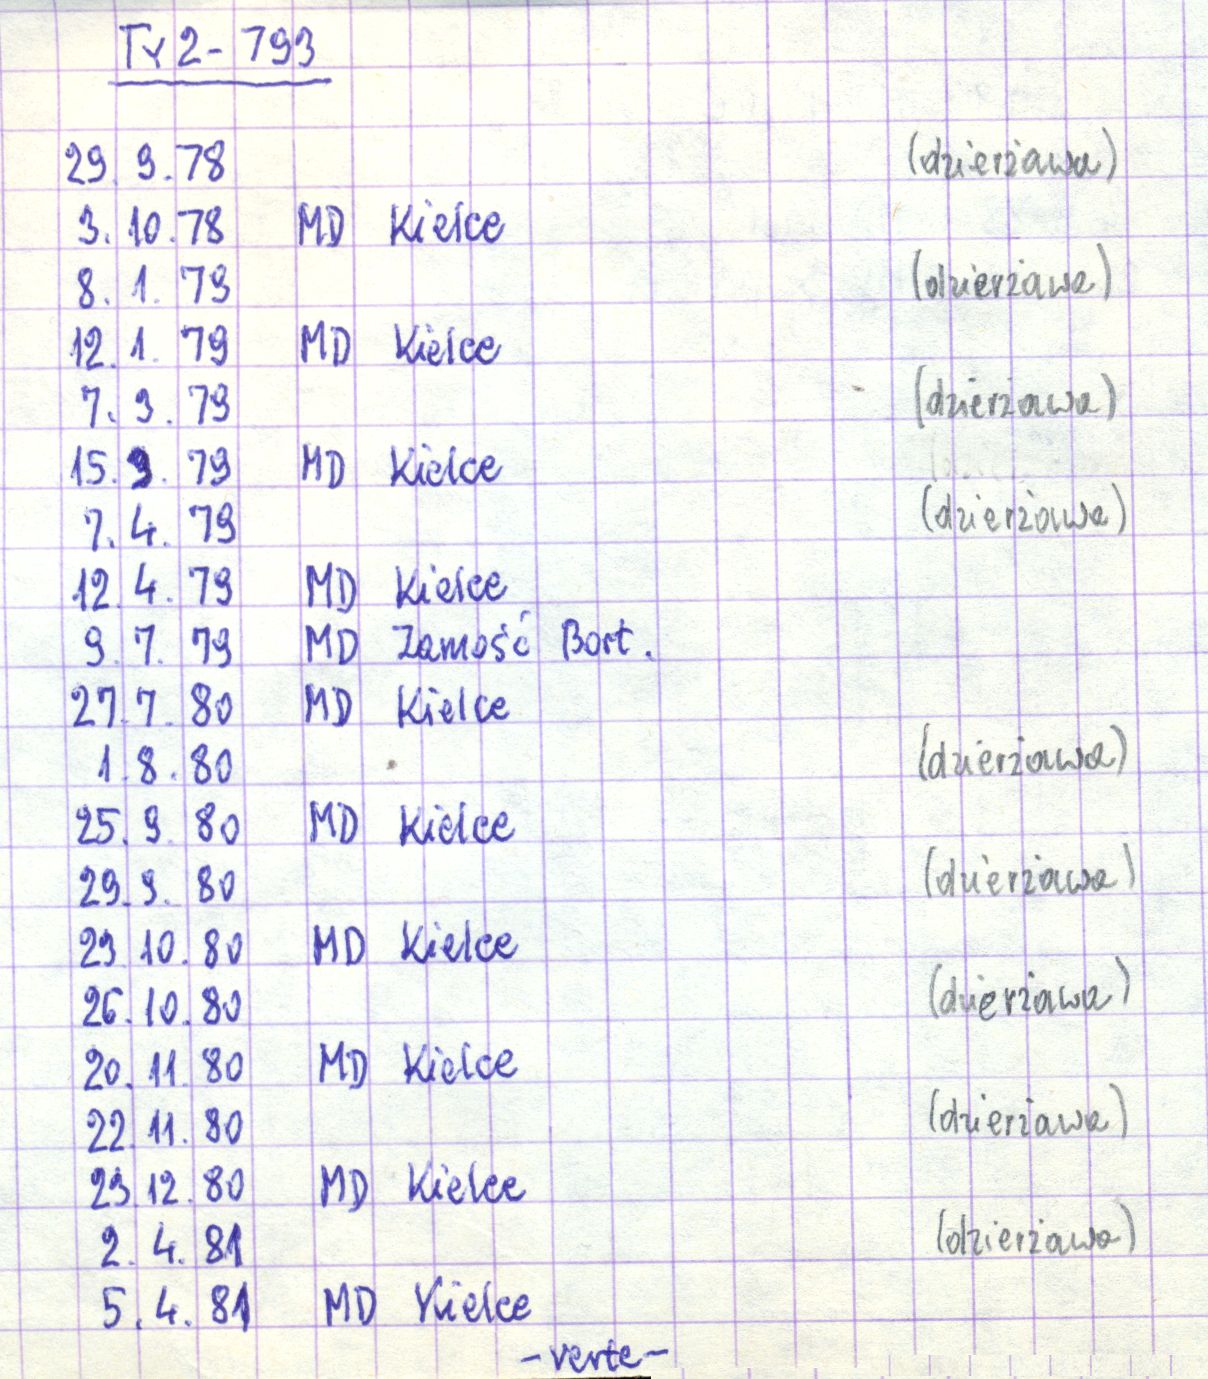 Ty 2 - 793
29. 9. 78 (dzierżawa)
3. 10. 78 MD Kielce
8. 1. 79 (dzierżawa)
12. 1. 79 MD Kielce
7. 3. 79 (dzierżawa)
15. 3. 79 MD Kielce
7. 4. 79 (dzierżawa)
12. 4. 79 MD Kielce
9. 7. 79 MD Zamość Bort.
27. 7. 80 MD Kielce
1. 8. 80 (dzierżawa)
25. 9. 80 MD Kielce
29. 9. 80 (dzierżawa)
23. 10. 80 MD Kielce
26. 10. 80 (dzierżawa)
20. 11. 80 MD Kielce
22. 11. 80 (dzierżawa)
23. 12. 80 MD Kielce
2. 4. 81 (dzierżawa)
5. 4. 81 MD Kielce
- verte -